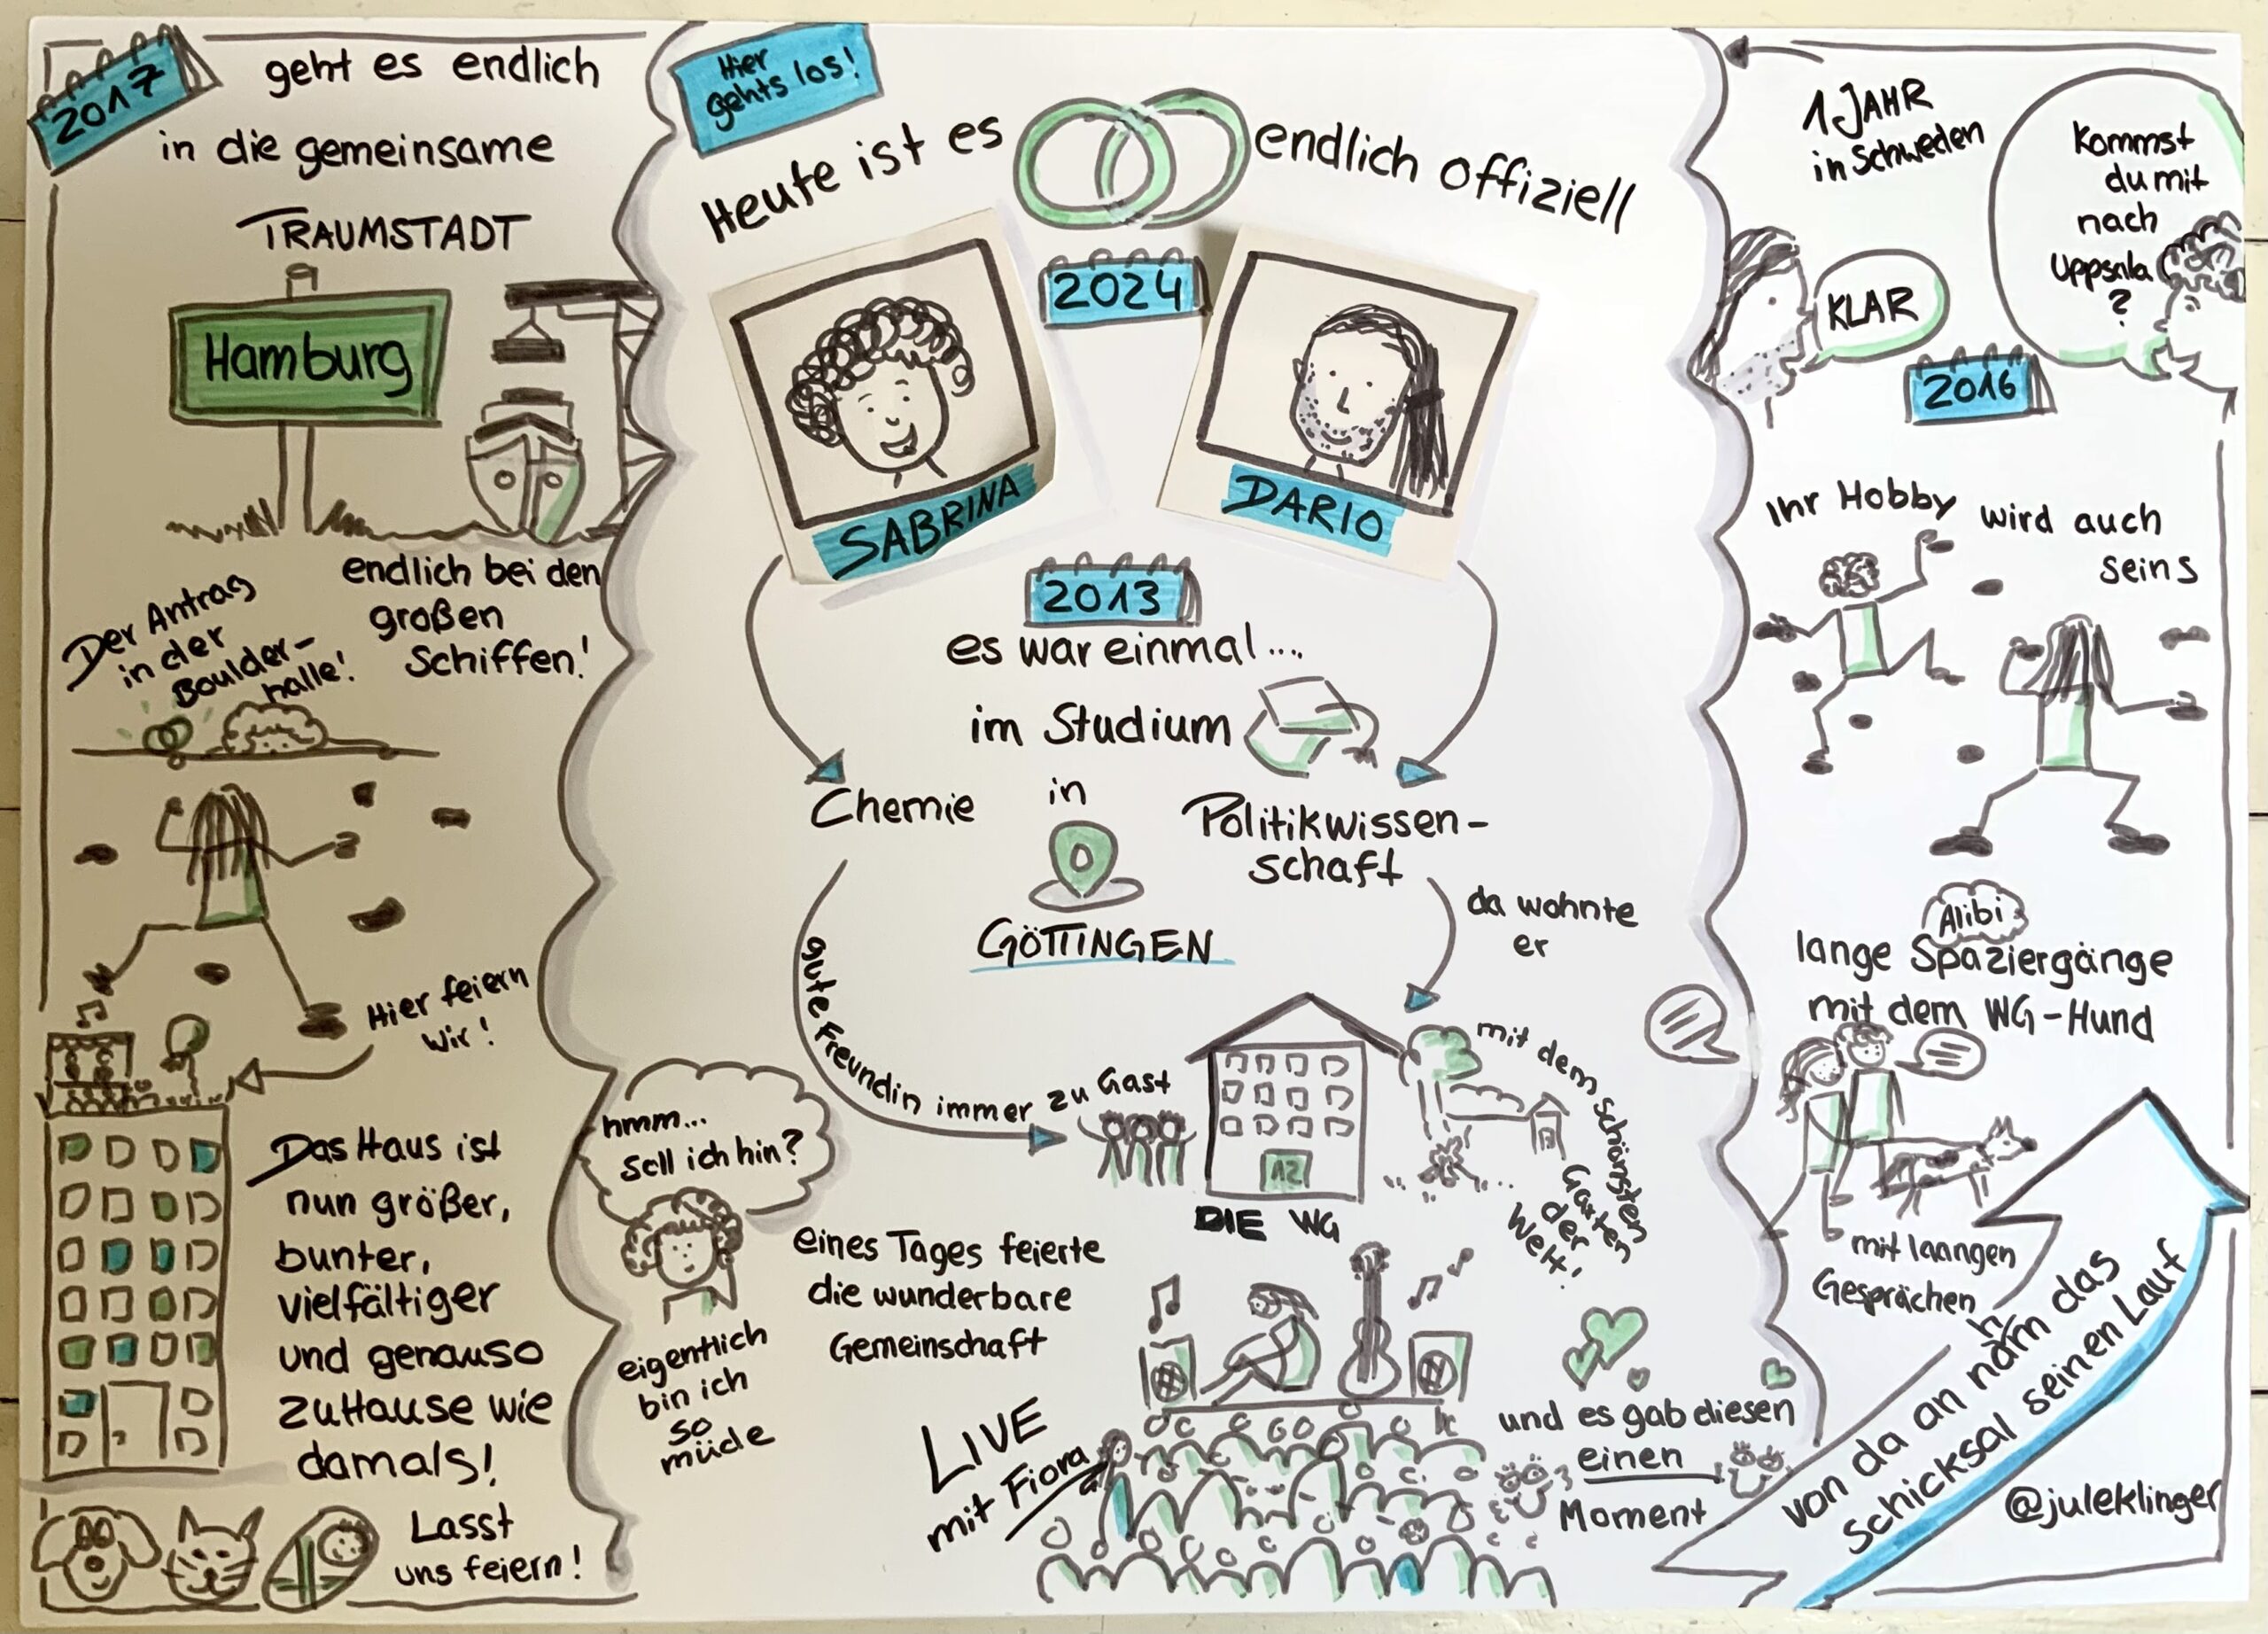 Hier
gehts los!
Heute ist es endlich offiziell
2024
SABRINA
DARIO
2013
es war einmal....
im Studium
Chemie
in
Politikwissen-
schaft
GÖTTINGEN
da wohnte
er
gute Freundin immer zu Gast
12
DIE WG
mit dem schönsten
Garten
der
Welt!
hmm...
soll ich hin?
eigentlich
bin ich
so
müde
eines Tages feierte
die wunderbare
Gemeinschaft
LIVE
mit Fiora
und es gab diesen
einen
Moment
von da an nahm das
Schicksal seinen Lauf
@juleklinger
Alibi
lange Spaziergänge
mit dem WG-Hund
mit laangen
Gesprächen
Ihr Hobby wird auch
seins
2016
1 JAHR
in Schweden
Kommst
du mit
nach
Uppsala
?
KLAR
2017
geht es endlich
in die gemeinsame
TRAUMSTADT
Hamburg
endlich bei den
großen
Schiffen!
Der Antrag
in der
Boulder-
halle!
Hier feiern
wir!
Das Haus ist
nun größer,
bunter,
vielfältiger
und genauso
zuHause wie
damals!
Lasst
uns feiern!